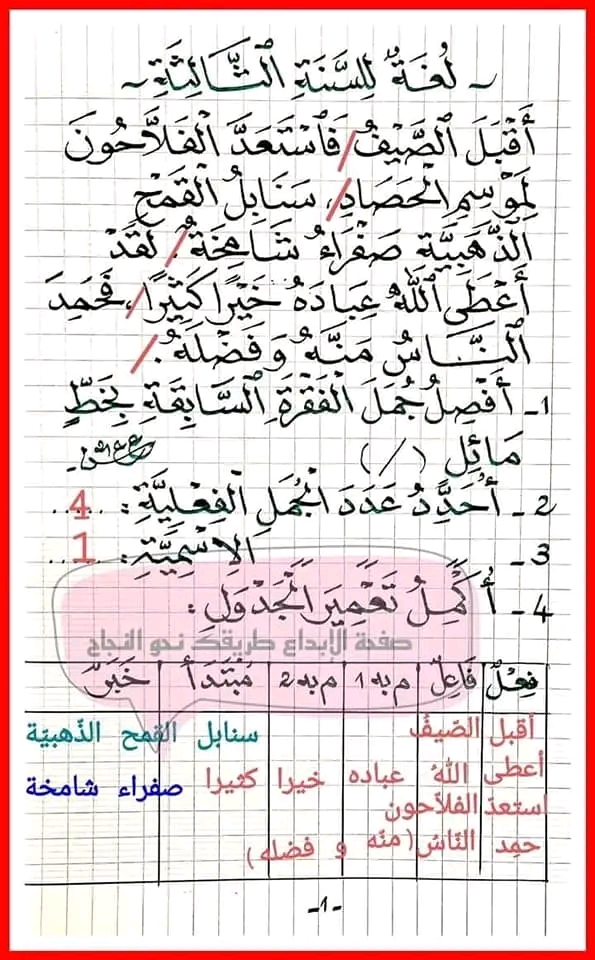 ~ لُغَةٌ لِلسَّنَةِ الثَّالِثَةِ ~
أَقْبَلَ الصَّيْفُ/ فَاسْتَعَدَّ الْفَلاَّحُونَ
لِمَوْسِمِ الْحَصَادِ/، سَنَابِلُ الْقَمْحِ
الذَّهَبِيَّةِ صَفْرَاءُ شَامِخَةٌ/. لَقَدْ
أَعْطَى اللَّهُ عِبَادَهُ خَيْرًا كَثِيرًا/، فَحَمِدَ
النَّاسُ مَنَّهُ وَ فَضْلَهُ./
1- أَفْصِلُ جُمَلَ الْفَقْرَةِ السَّابِقَةِ بِخَطٍّ
مَائِل (/).
2- أُحَدِّدُ عَدَدَ الْجُمَلِ الْفِعْلِيَّةِ: ..4...
3- الاِسْمِيَّةِ: ..1..
4- أُكْمِلُ تَعْمِيرَ الْجَدْوَلِ:
صفحة الإبداع طريقك نحو النجاح
فِعْلٌ فَاعِلٌ م به 1 م به 2 مُبْتَدَأ خَبَرٌ
أقبل الصّيفُ سنابل القمح الذّهبيّة
أعطى اللهُ عباده خيرا كثيرا صفراء شامخة
استعدّ الفلاّحون
حمِد النّاسُ (منّه و فضله)
-1-